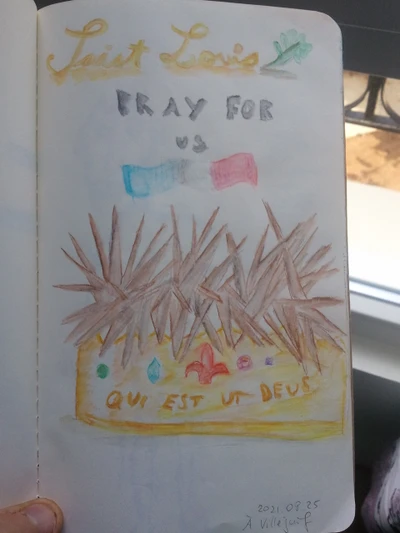 Saint Louis
PRAY FOR
US
QUI EST UT DEUS
2021.08.25
À Villejuif